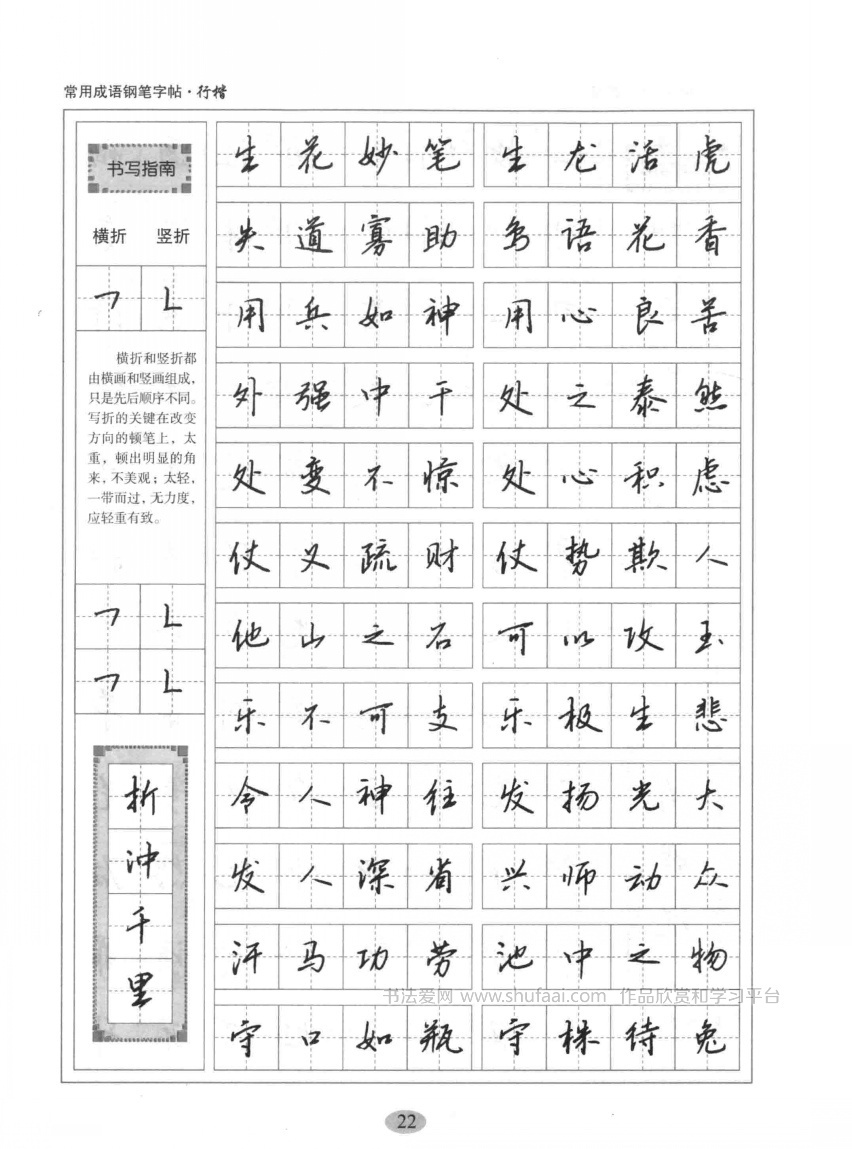 常用成语钢笔字帖·行楷
书写指南
横折 竖折
㇕ ㇗
横折和竖折都
由横画和竖画组成，
只是先后顺序不同。
写折的关键在改变
方向的顿笔上，太
重，顿出明显的角
来，不美观；太轻，
一带而过，无力度，
应轻重有致。
㇕ ㇗
㇕ ㇗
折
冲
千
里
生花妙笔 生龙活虎
失道寡助 鸟语花香
用兵如神 用心良苦
外强中干 处之泰然
处变不惊 处心积虑
仗义疏财 仗势欺人
他山之石 可以攻玉
乐不可支 乐极生悲
令人神往 发扬光大
发人深省 兴师动众
汗马功劳 池中之物
书法爱网 www.shufaai.com 作品欣赏和学习平台
守口如瓶 守株待兔
22